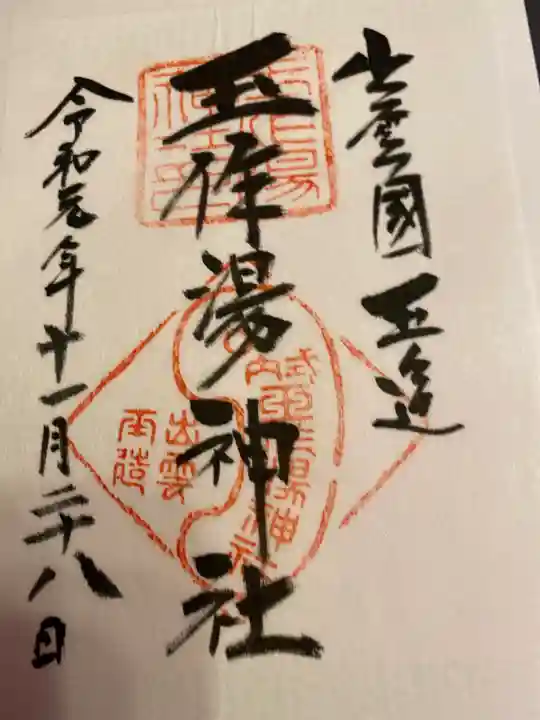 出雲國 玉造
玉作湯神社
令和元年十一月二十八日
式内玉作湯神社
出雲
玉造